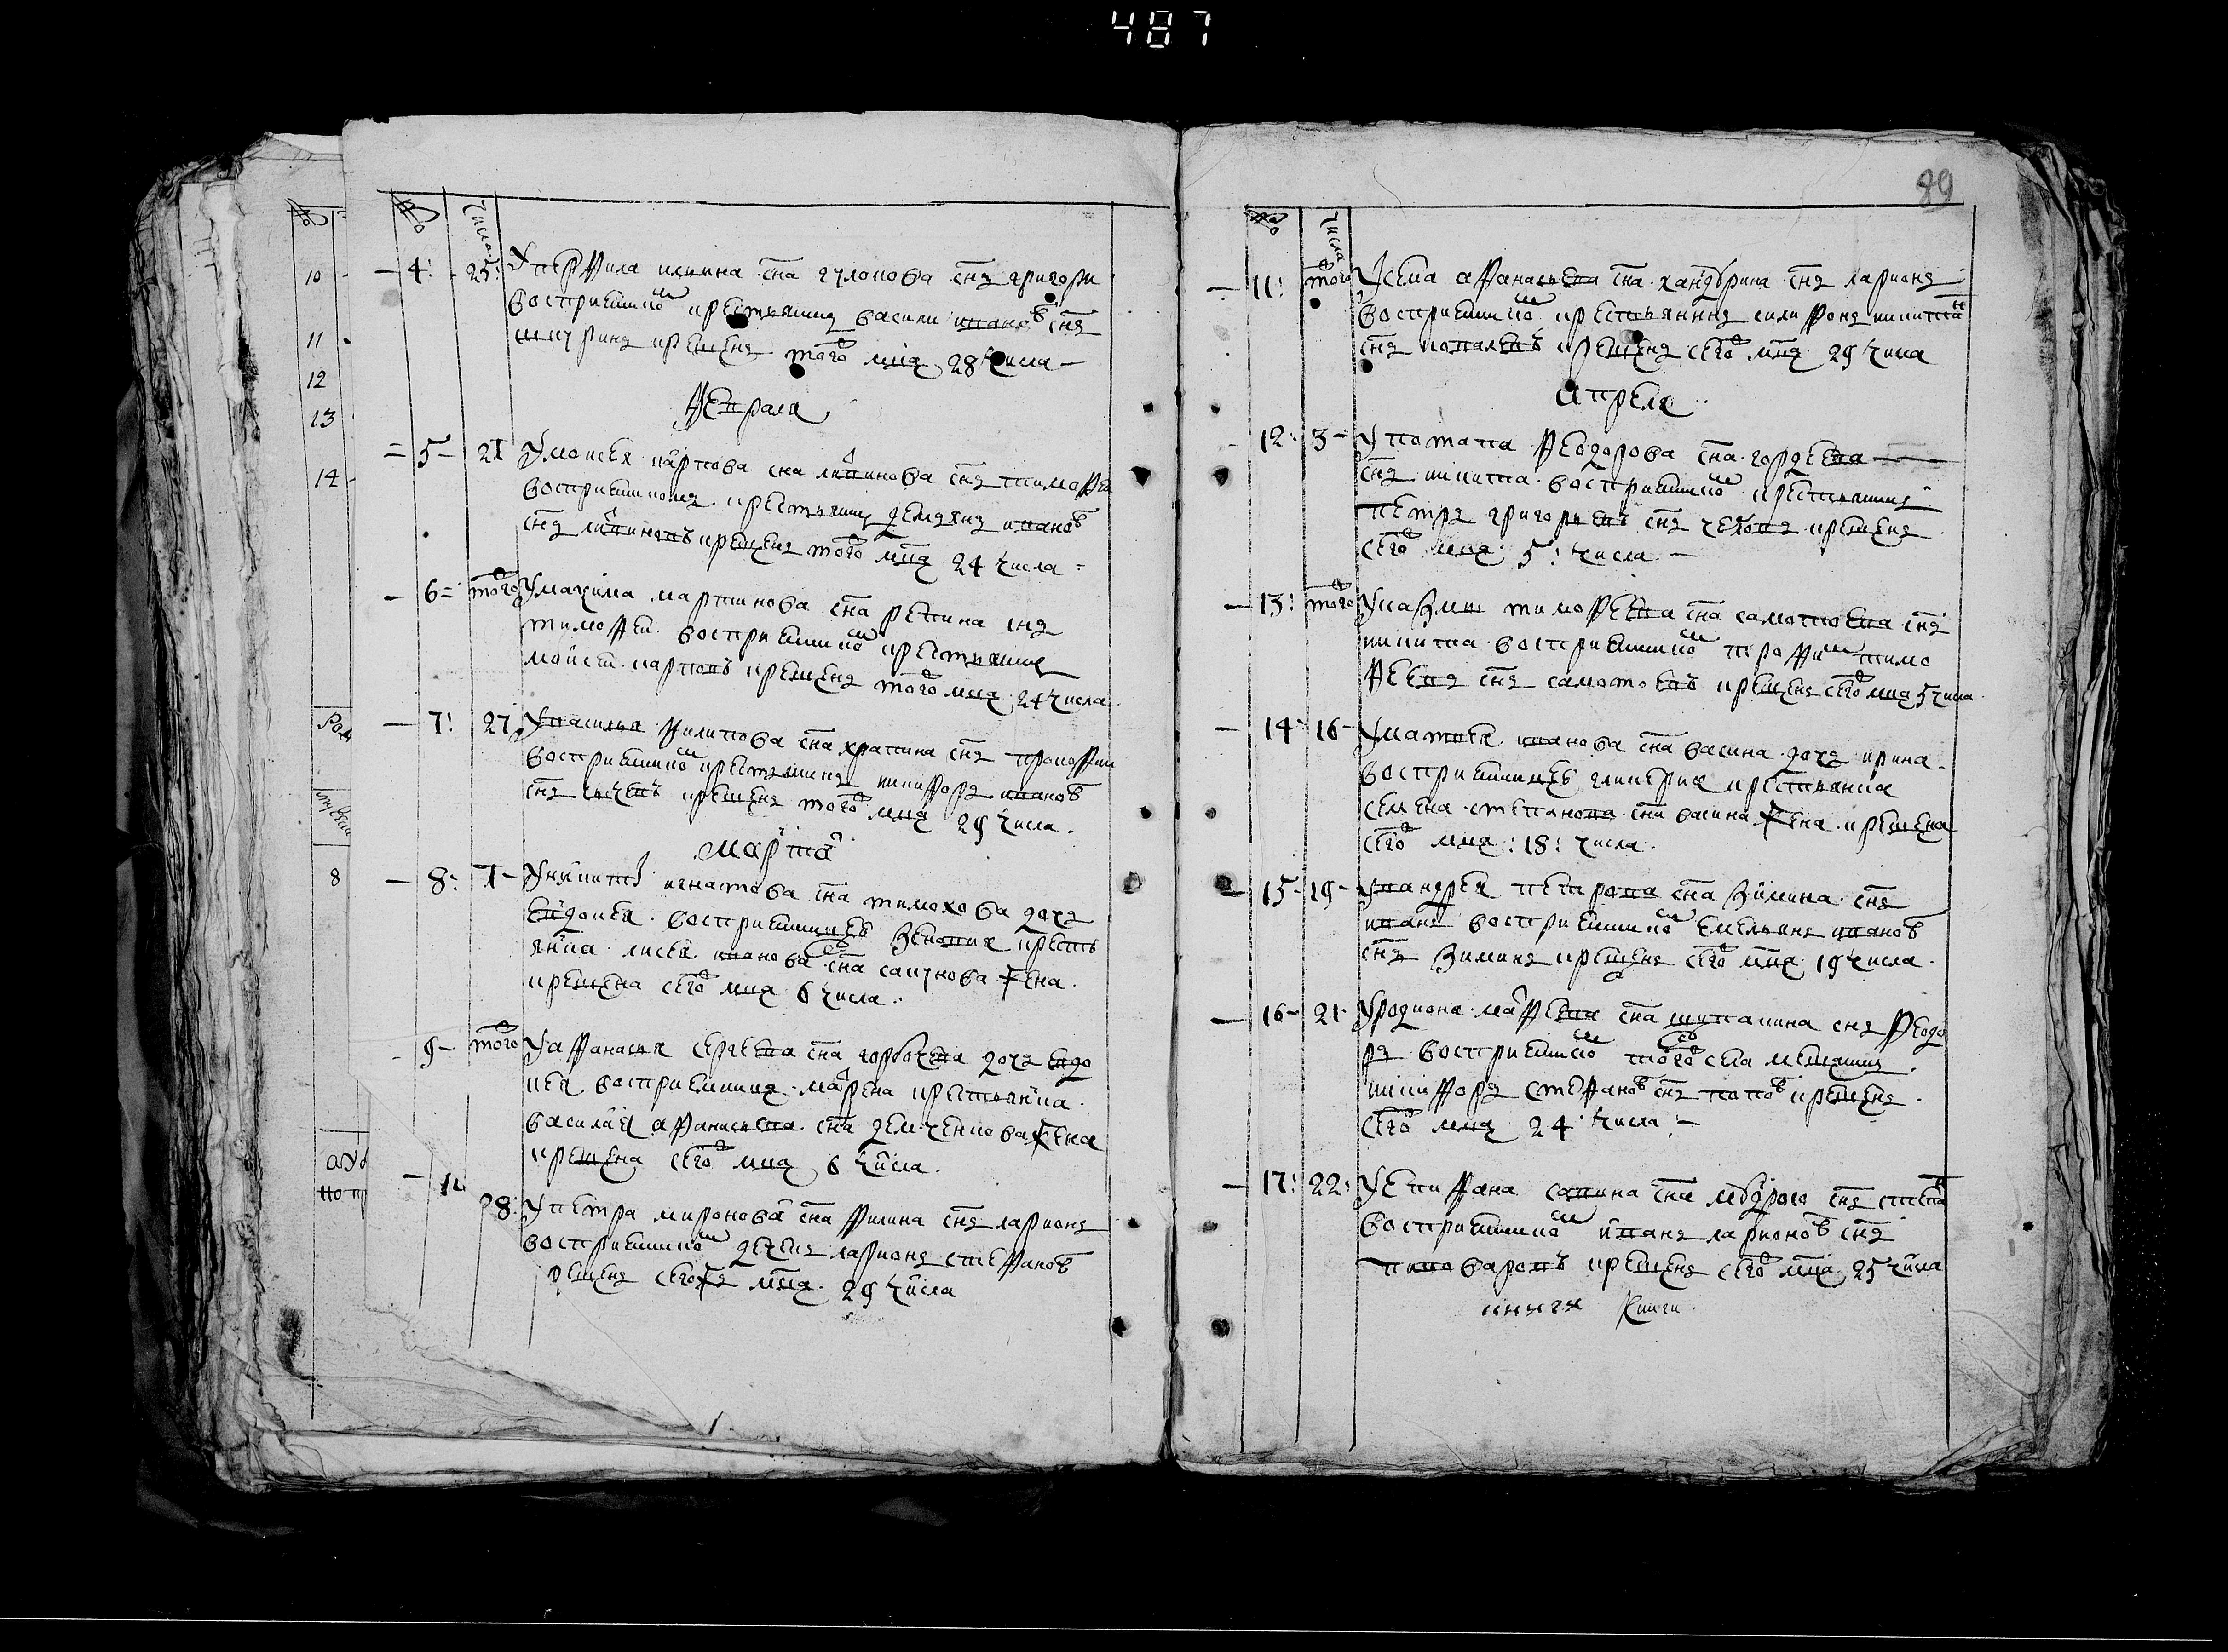 487
числа
4: 25: У перфила илина сна гулопова снъ григори
восприемико крестьянинъ василей иванов снъ
щукринъ крещенъ того мца 28 числа
февраля
5 21 У моисея карпова сна литвинова снъ тимофеи
восприемникомъ крестьянинъ демянъ иванов
снъ литвиновъ крещенъ того мца 24 числа
6 того У макима мартинова сна репина снъ
тимофеи восприемнико крестьянинъ
моисеи карповъ крещенъ того мца 24 числа
7: 27 У василья филипова сна крапина снъ прокофии
восприемнико крестьянинъ никифоръ иванов
снъ крещенъ того мца 29 числа
марта
8: 1 У никиты игнатова сна тимохова дочь
евдокея восприемницею зеновия кресть
янка лисея иванова сна сапунова жена
крещена сего мца 6 числа
9 того У афанасья сергеева сна горбочева дочь евдо
кея восприемница марена крестьянка
василия афанасьева сна демченкова жена
крещена сего мца 6 числа
28: У петра миронова сна филина снъ ларионъ
восприемнико дьячекъ ларионъ стефанов
рещенъ сегожъ мца 29 числа
10
11
12
13
14
8
89
числа
11: того У сема афанасьева сна хандырина снъ ларионъ
восприемнико крестьянинъ силифонъ никитин
снъ коваловъ крещенъ сего мца 29 числа
апреля
12: 3 У потапа федорова сна гордеева
снъ никита восприемнико крестьянинъ
петръ григорьевъ снъ чеховъ крещенъ
сего мца 5: числа
13: того У казми тимофеева сна самотоева снъ
никита восприемнико трофим тимо
феевъ снъ самотоевъ крещенъ сего мца 5 числа
14 16 У матвея иванова сна васина дочь ирина
восприемницею гликерия крестьянка
семена степанова сна васина жена крещена
сего мца: 18: числа
15 19 У андрея петрова сна зимина снъ
иванъ восприемнико емельянъ иванов
снъ зиминъ крещенъ сего мца 19 числа
16 21 У родиона матфеева сна шипакина снъ федо
ръ восприемнико того села мещанинъ
никифоръ стефанов снъ попов крещенъ
сего мца 24 числа
17: 22: У епифана савина сна мокрого снъ степан
восприемнико иванъ ларионов снъ
пивоваровъ крещенъ сего мца 25 числа
книги